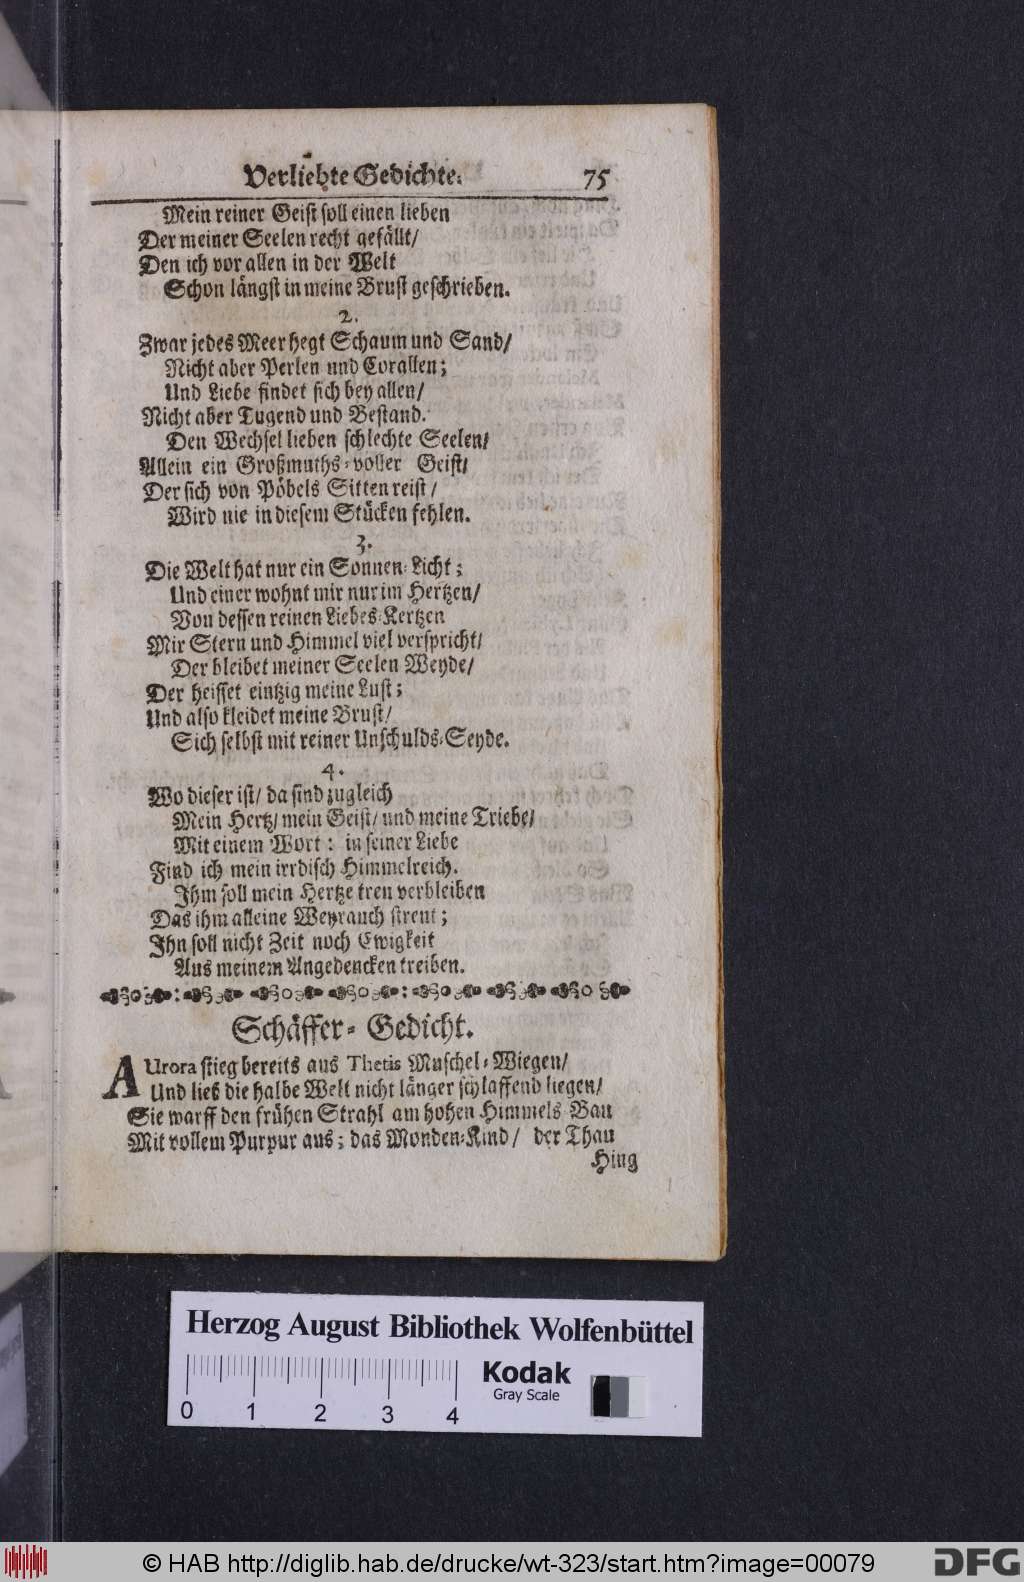 Verliebte Gedichte. 75
Mein reiner Geist soll einen lieben
Der meiner Seelen recht gefällt/
Den ich vor allen in der Welt
Schon längst in meine Brust geschrieben.
2.
Zwar jedes Meer hegt Schaum und Sand/
Nicht aber Perlen und Corallen;
Und Liebe findet sich bey allen/
Nicht aber Tugend und Bestand.
Den Wechsel lieben schlechte Seelen/
Allein ein Großmuths-voller Geist/
Der sich von Pöbels Sitten reist/
Wird nie in diesem Stücken fehlen.
3.
Die Welt hat nur ein Sonnen-Licht;
Und einer wohnt mir nur im Hertzen/
Von dessen reinen Liebes-Kertzen
Mir Stern und Himmel viel verspricht/
Der bleibet meiner Seelen Weyde/
Der heisset eintzig meine Lust;
Und also kleidet meine Brust/
Sich selbst mit reiner Unschulds-Seyde.
4.
Wo dieser ist/ da sind zugleich
Mein Hertz/ mein Geist/ und meine Triebe/
Mit einem Wort: in seiner Liebe
Find ich mein irrdisch Himmelreich.
Ihm soll mein Hertze treu verbleiben
Das ihm alleine Weyrauch streut;
Ihn soll nicht Zeit noch Ewigkeit
Aus meinem Angedencken treiben.
Schäffer-Gedicht.
AUrora stieg bereits aus Thetis Muschel-Wiegen/
Und ließ die halbe Welt nicht länger schlaffend liegen/
Sie warff den frühen Strahl am hohen Himmels-Bau
Mit vollem Purpur aus; das Monden-Kind/ der Thau
Hing
Herzog August Bibliothek Wolfenbüttel
Kodak
Gray Scale
0 1 2 3 4
© HAB http://diglib.hab.de/drucke/wt-323/start.htm?image=00079
DFG